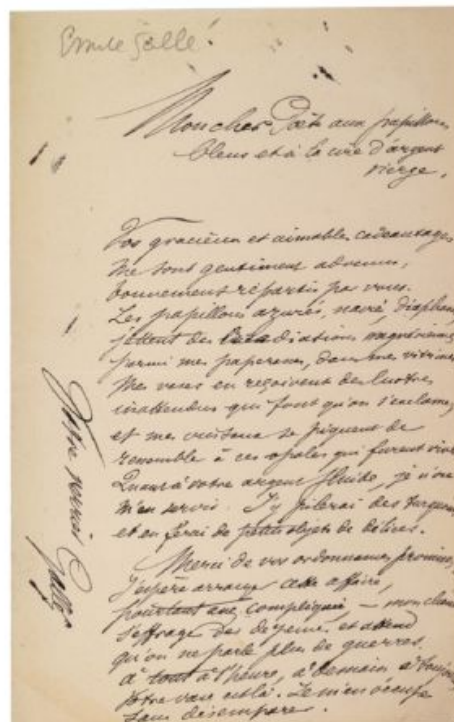 Emile Gallé.
Mon cher Poëte aux papillons
bleus et à la cire d'argent
vierge.
Vos gracieux et aimables cadeautages
me sont gentiment advenus,
bonnement répartis par vous.
Les papillons azurés, nacré, diaphane
jettent des irradiations
parmi mes paperasses, dans mes vitrines
Mes vases en reçoivent des lustres
inattendus qui font qu'on s'exclame,
et mes cristaux se piquent de
ressembler à ces opales qui furent
Quant à votre argent fluide, je n'ose
m'en servir. J'y pilerai des turquoises
et en ferai de petits objets de
Merci de vos ordonnances promises,
J'espère arranger cette affaire,
pourtant compliquée – mon client
s'effraye des et attend
qu'on ne parle plus de guerres.
à tout à l'heure, à demain à toujours
Votre vase est là. Je m'en occupe
sans désemparer.
Votre
Gallé